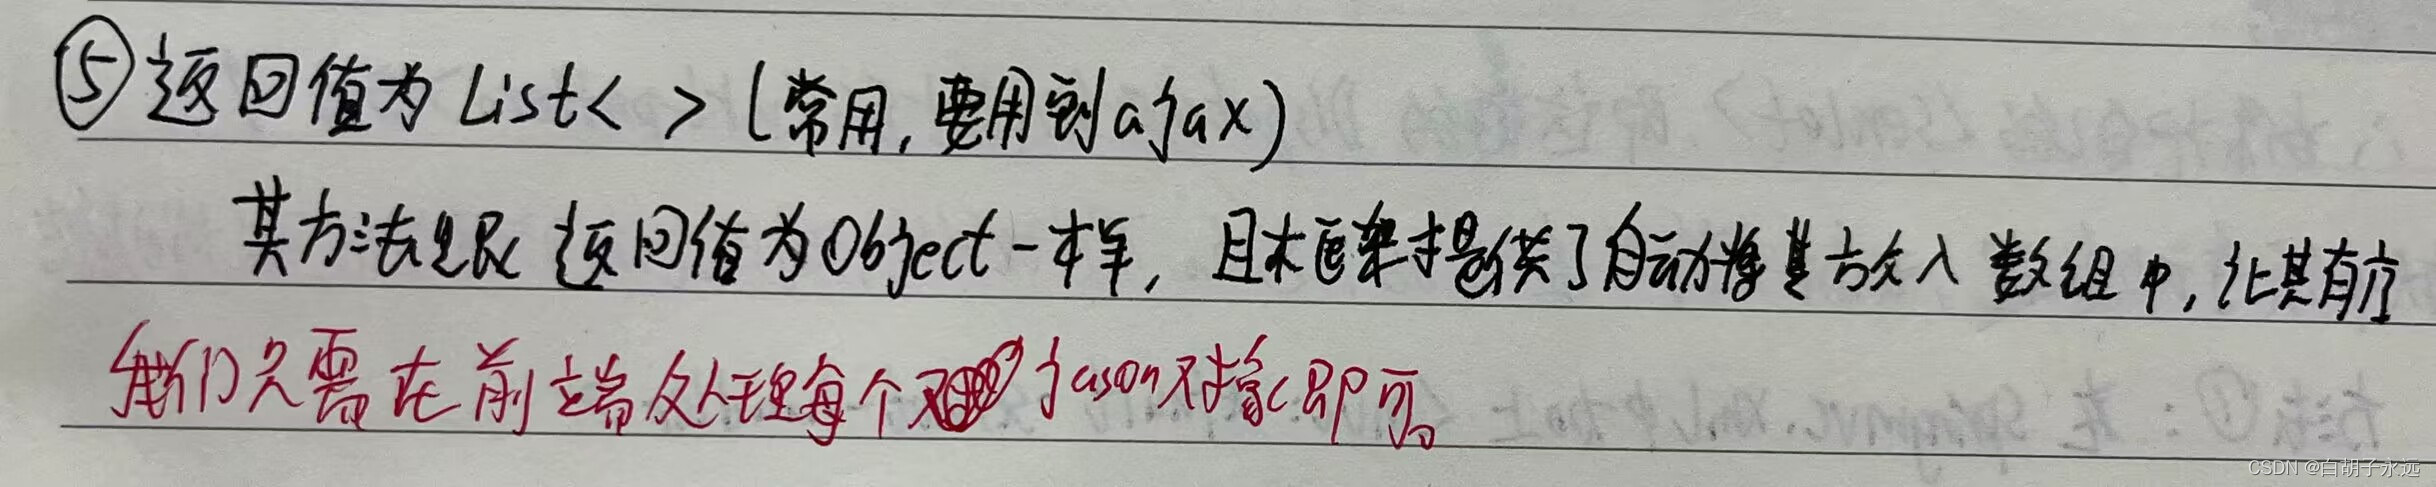 ⑤返回值为List< >(常用,要用到ajax)
其方法跟返回值为Object一样,且本框架提供了自动将其放入数组中,让其有序
我们只需在前端处理每个jason对象即可。
CSDN @白胡子永远